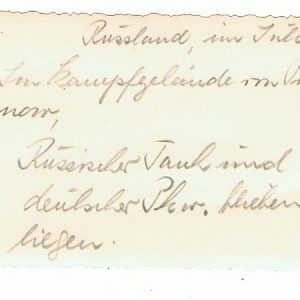 Russland, im Jul
Im Kampfgelände von
now,
Russischer Tank und
deutscher Pkw. blieben
liegen.